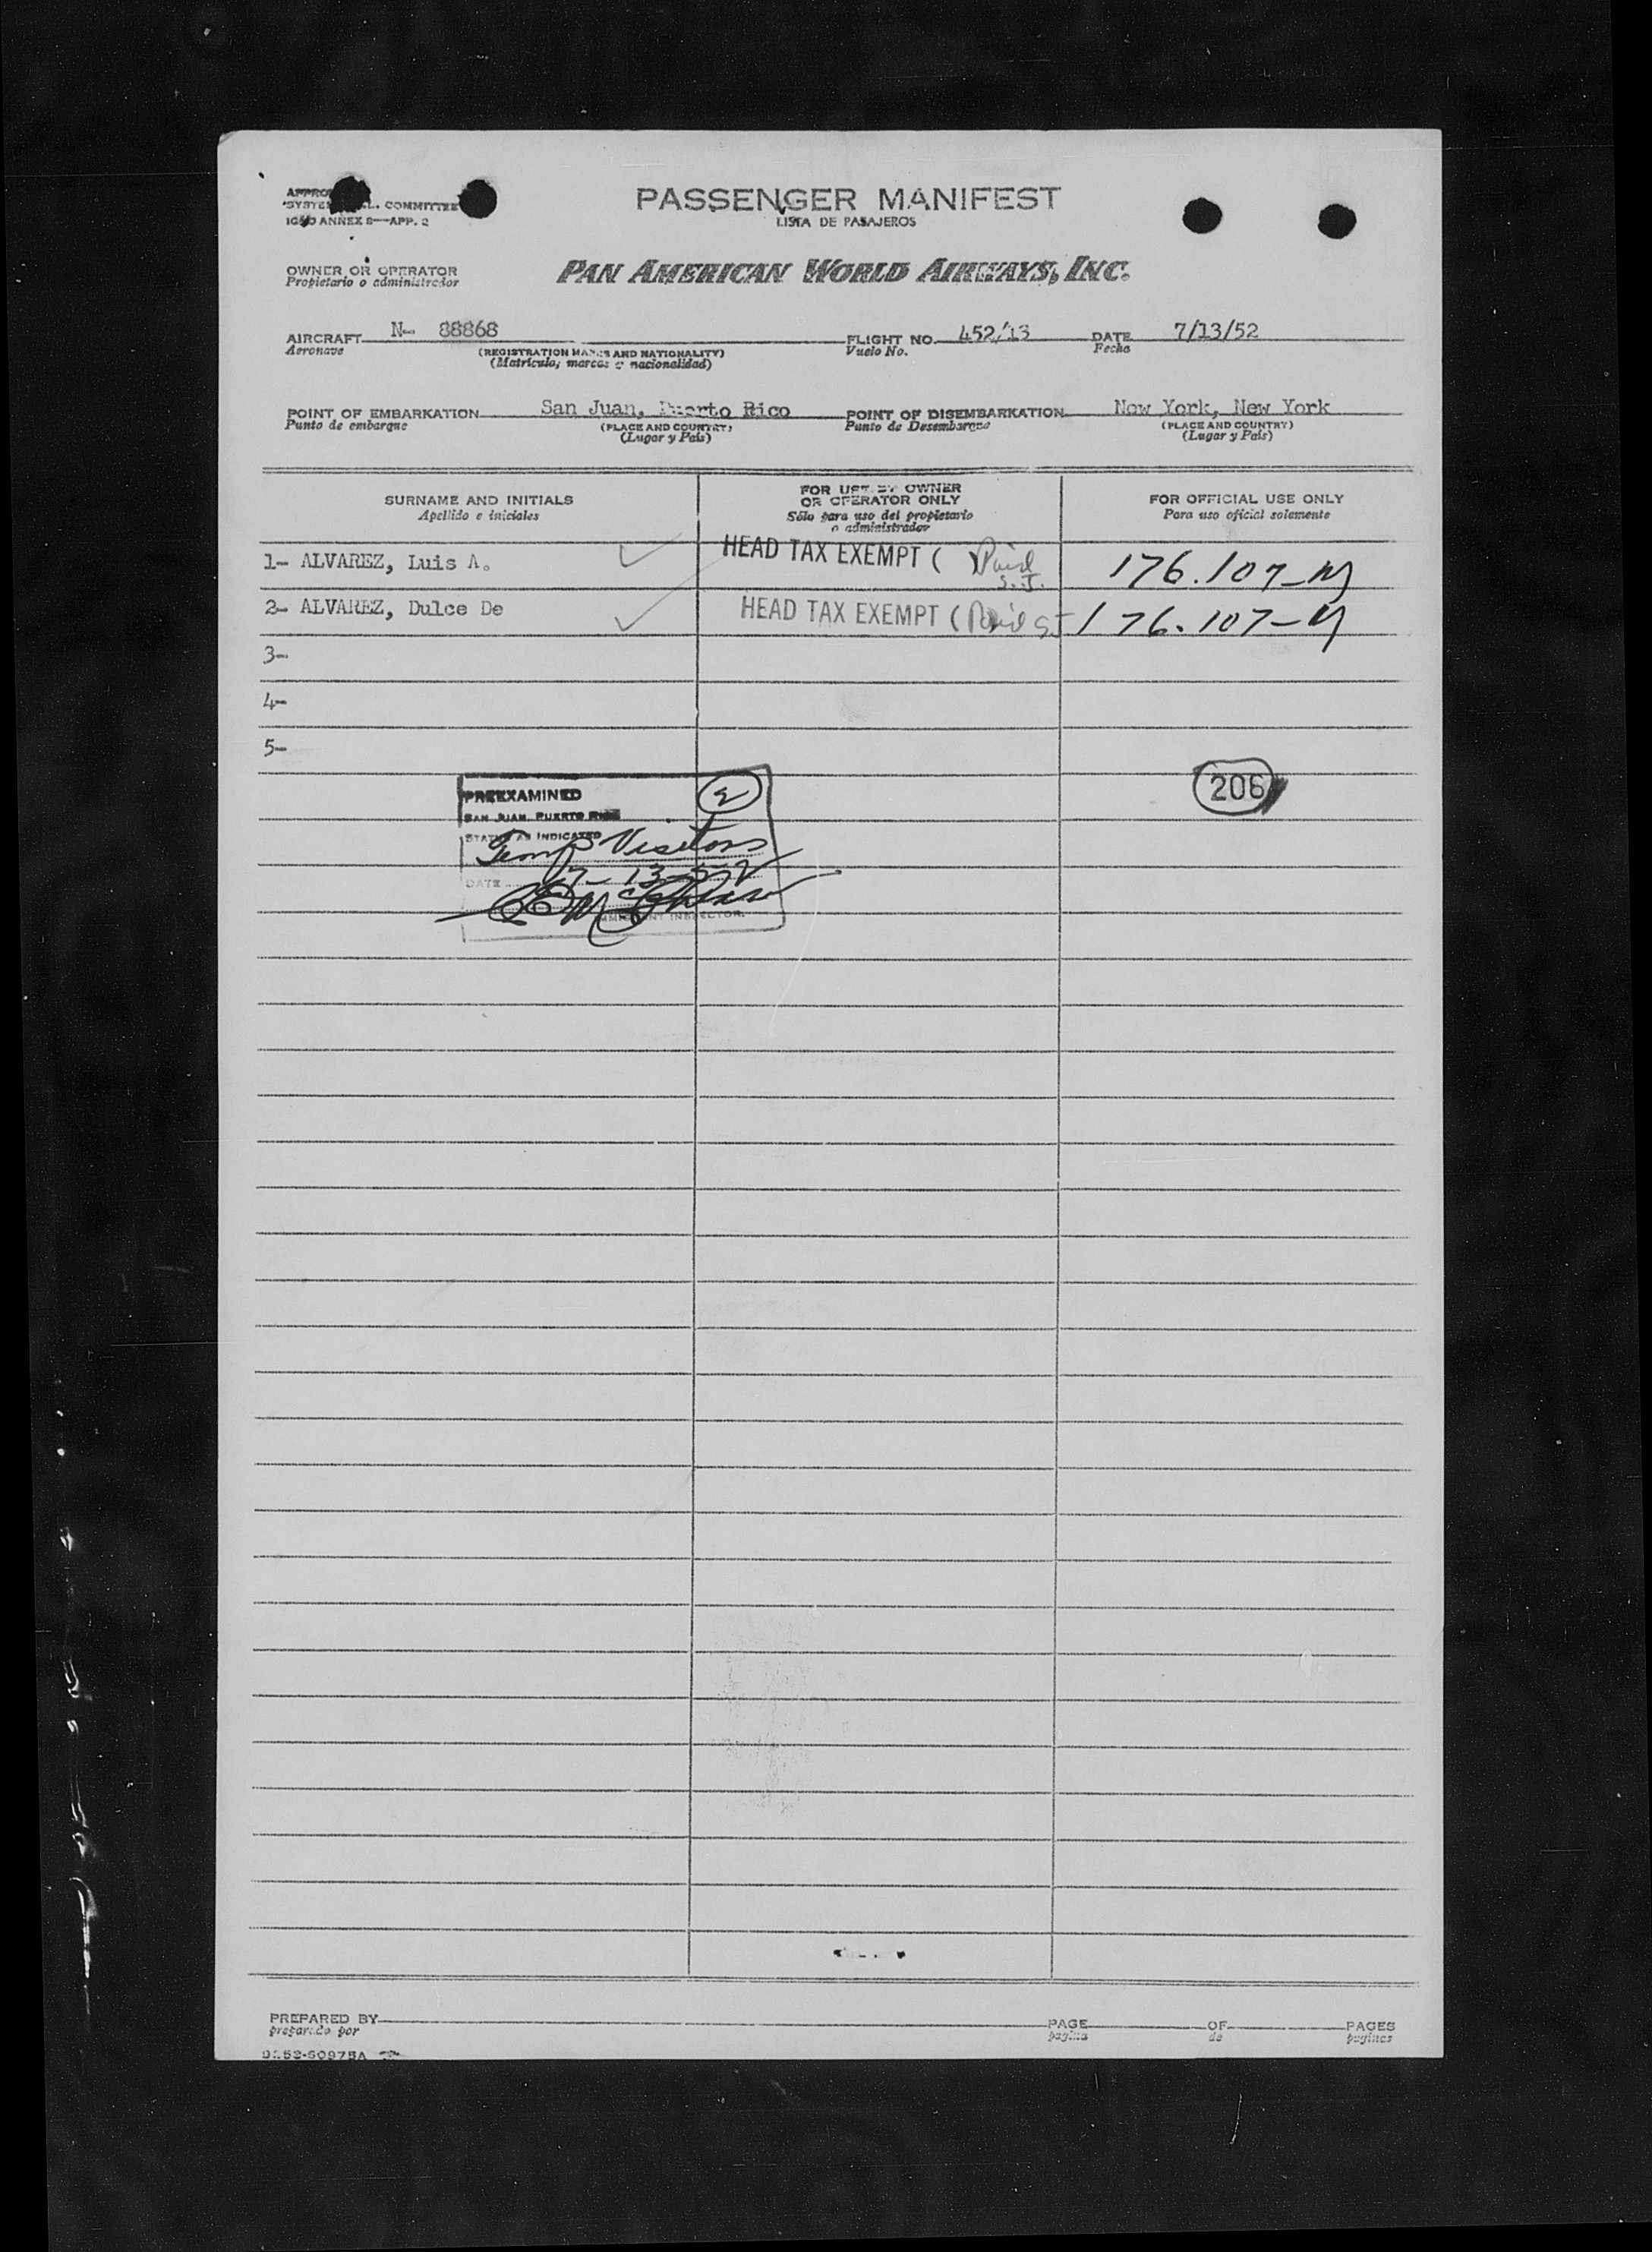 PASSENGER MANIFEST
LISTA DE PASAJEROS
COMMITTEE
ANNEX 8—APP. 2
OWNER OR OPERATOR
Propietario o administrador
PAN AMERICAN WORLD AIRWAYS, INC.
AIRCRAFT N- 88868 FLIGHT NO. 452/13 DATE 7/13/52
Aeronave (REGISTRATION MARKS AND NATIONALITY) Vuelo No. Fecha
(Matricula, marcas y nacionalidad)
POINT OF EMBARKATION San Juan, Puerto Rico POINT OF DISEMBARKATION New York, New York
Punto de embarque (PLACE AND COUNTRY) Punto de Desembarque (PLACE AND COUNTRY)
(Lugar y País) (Lugar y País)
SURNAME AND INITIALS
Apellido e iniciales
FOR USE BY OWNER
OR OPERATOR ONLY
Sólo para uso del propietario
o administrador
FOR OFFICIAL USE ONLY
Para uso oficial solamente
1- ALVAREZ, Luis A. HEAD TAX EXEMPT ( Paid S.J. 176.107-M
2- ALVAREZ, Dulce De HEAD TAX EXEMPT ( Paid SJ 176.107-M
3-
4-
5-
206
PREEXAMINED 2
SAN JUAN, PUERTO RICO
STATUS AS INDICATED
Temp Visitors
DATE 7-13-52
IMMIGRANT INSPECTOR.
PREPARED BY PAGE OF PAGES
preparado por pagina de paginas